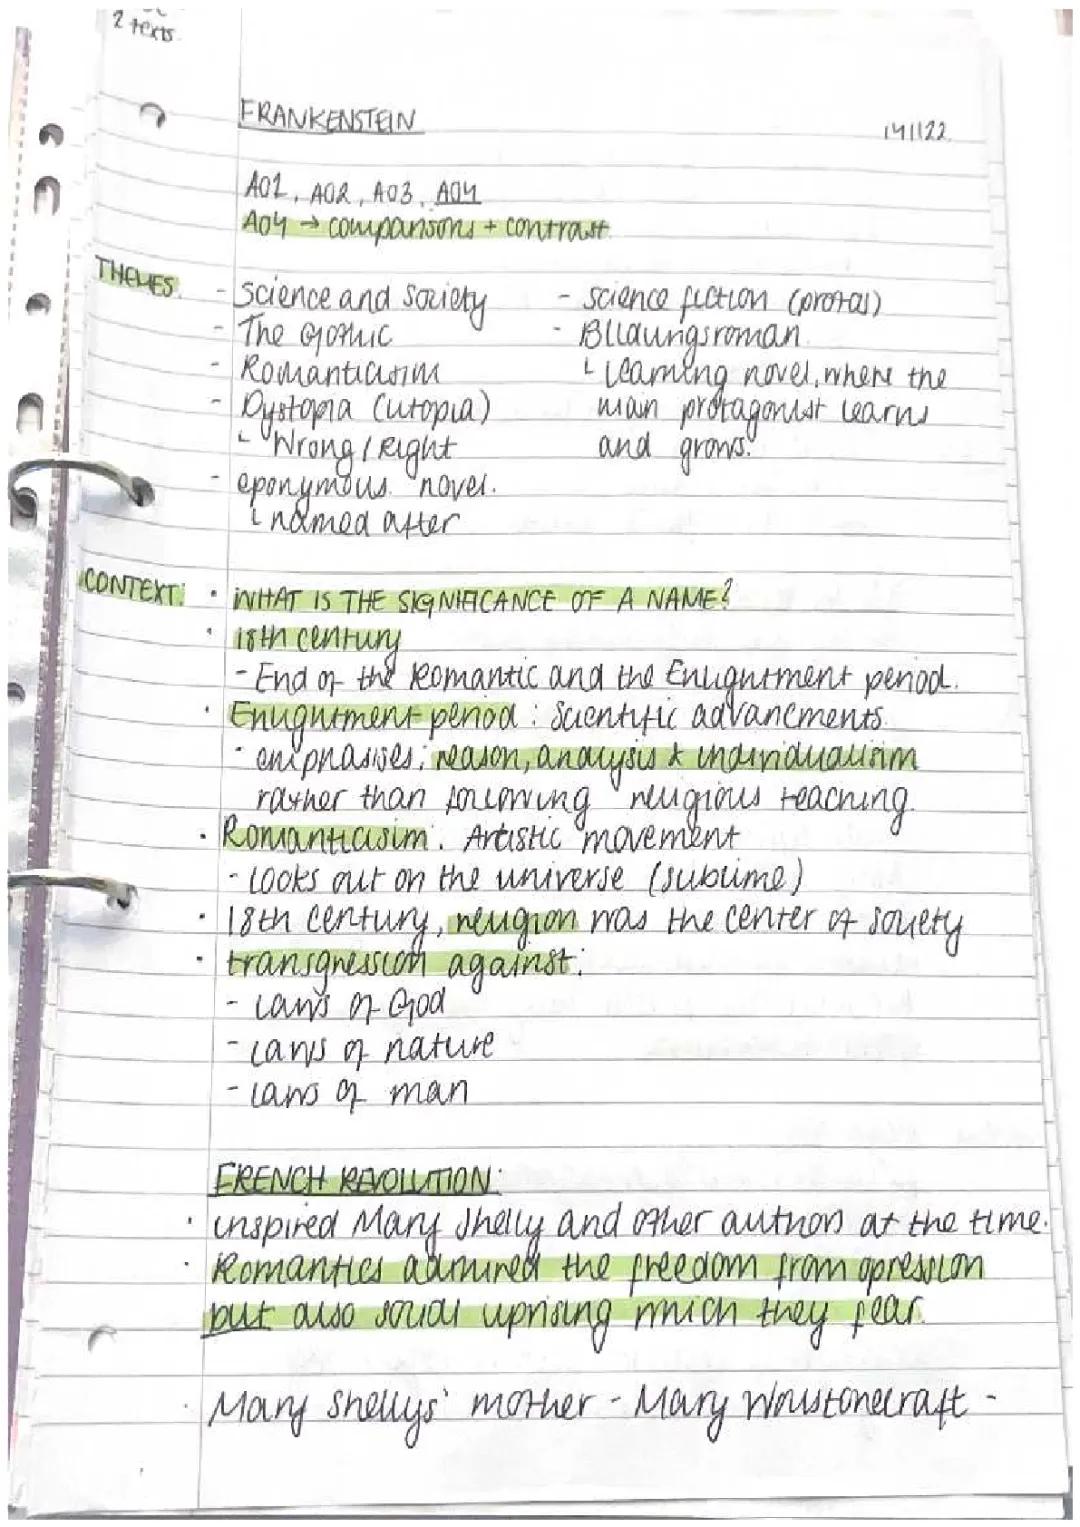 2 texts.
FRANKENSTEIN
14/1/22
A01, A02, A03, A04
A04 → comparisons + contrast
THEMES.
- Science and Society
- The Gothic
- Romanticisim
- Dystopia (utopia)
└ Wrong / Right
- eponymous novel.
└ named after
- science fiction (protas)
- Bildungsroman
└ learning novel, where the
main protagonist learns
and grows.
CONTEXT:
• WHAT IS THE SIGNIFICANCE OF A NAME?
• 18th century
- End of the Romantic and the Enlightment period.
• Enlightment period : Scientific advancments
• emphasises: reason, analysis & individualisim
rather than following religious teaching.
• Romanticisim. Artistic movement
- looks out on the universe (sublime)
• 18th century, religion was the center of society
• transgression against:
- laws of God
- laws of nature
- laws of man
FRENCH REVOLUTION:
• inspired Mary Shelly and other authors at the time.
• Romantics admired the freedom from opression
but also social uprising which they fear.
• Mary Shellys' mother - Mary Wollstonecraft -